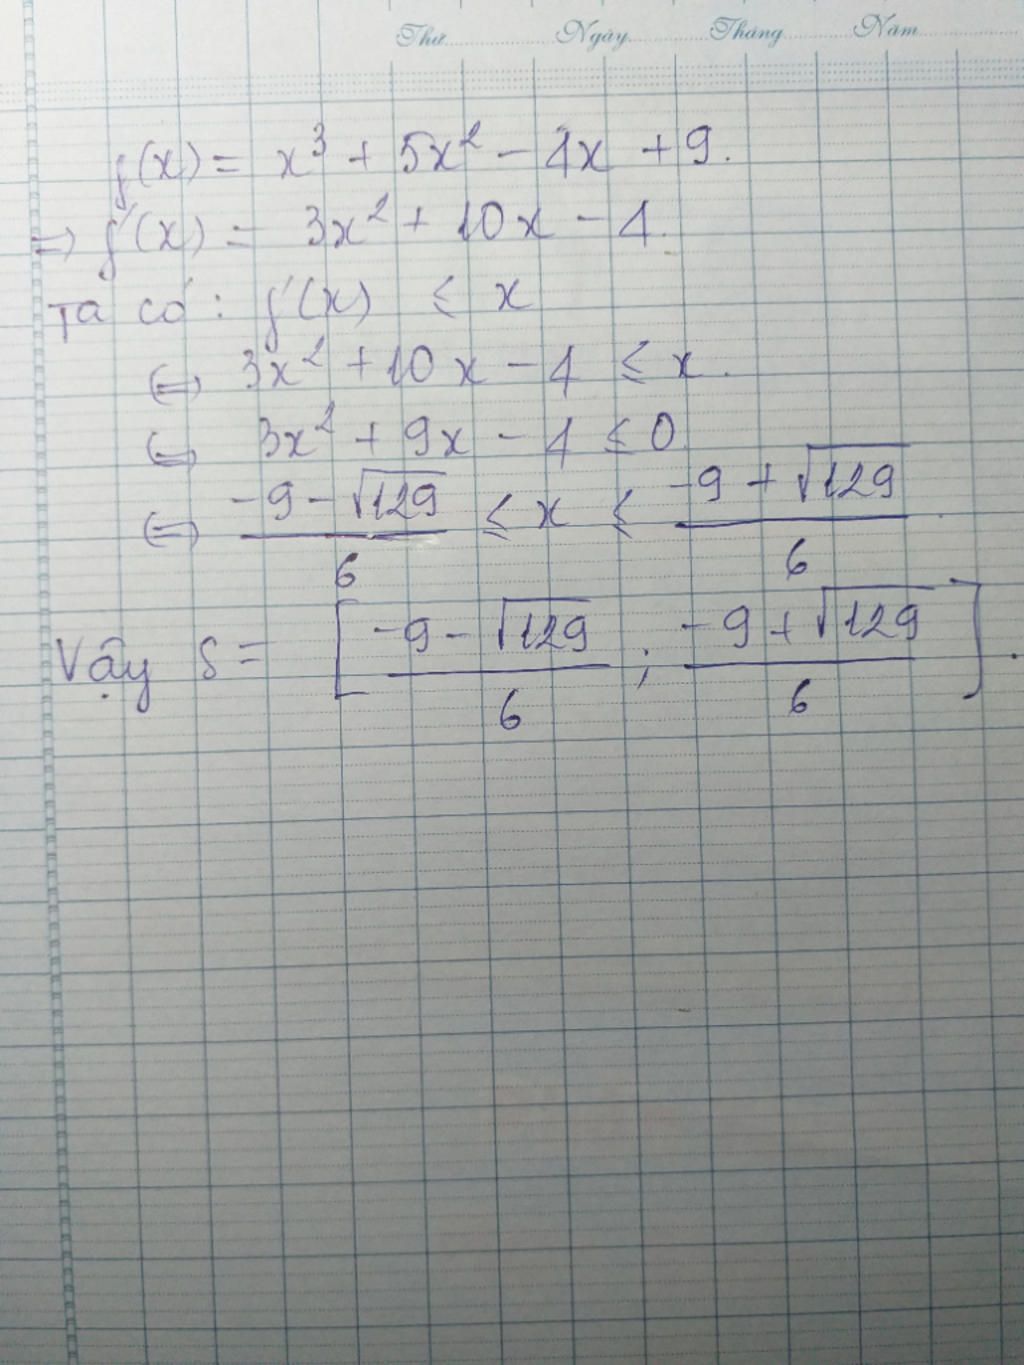 Thứ Ngày Tháng Năm
f(x) = x³ + 5x² - 4x + 9.
⇒ f'(x) = 3x² + 10x - 4.
Ta có: f'(x) ≤ x
⇔ 3x² + 10x - 4 ≤ x.
⇔ 3x² + 9x - 4 ≤ 0
⇔ (-9 - √129)/6 ≤ x ≤ (-9 + √129)/6.
Vậy S = [(-9 - √129)/6 ; (-9 + √129)/6].